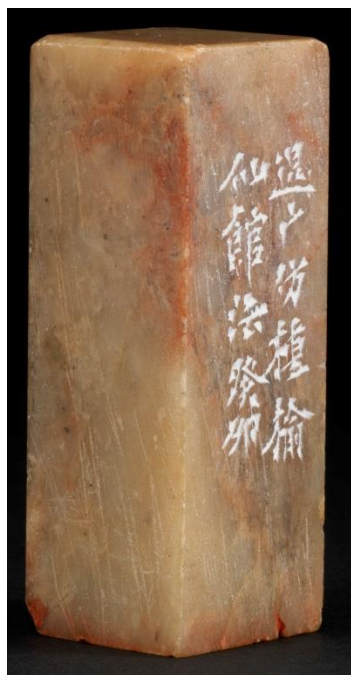 退厂仿種榆
仙館法癸卯